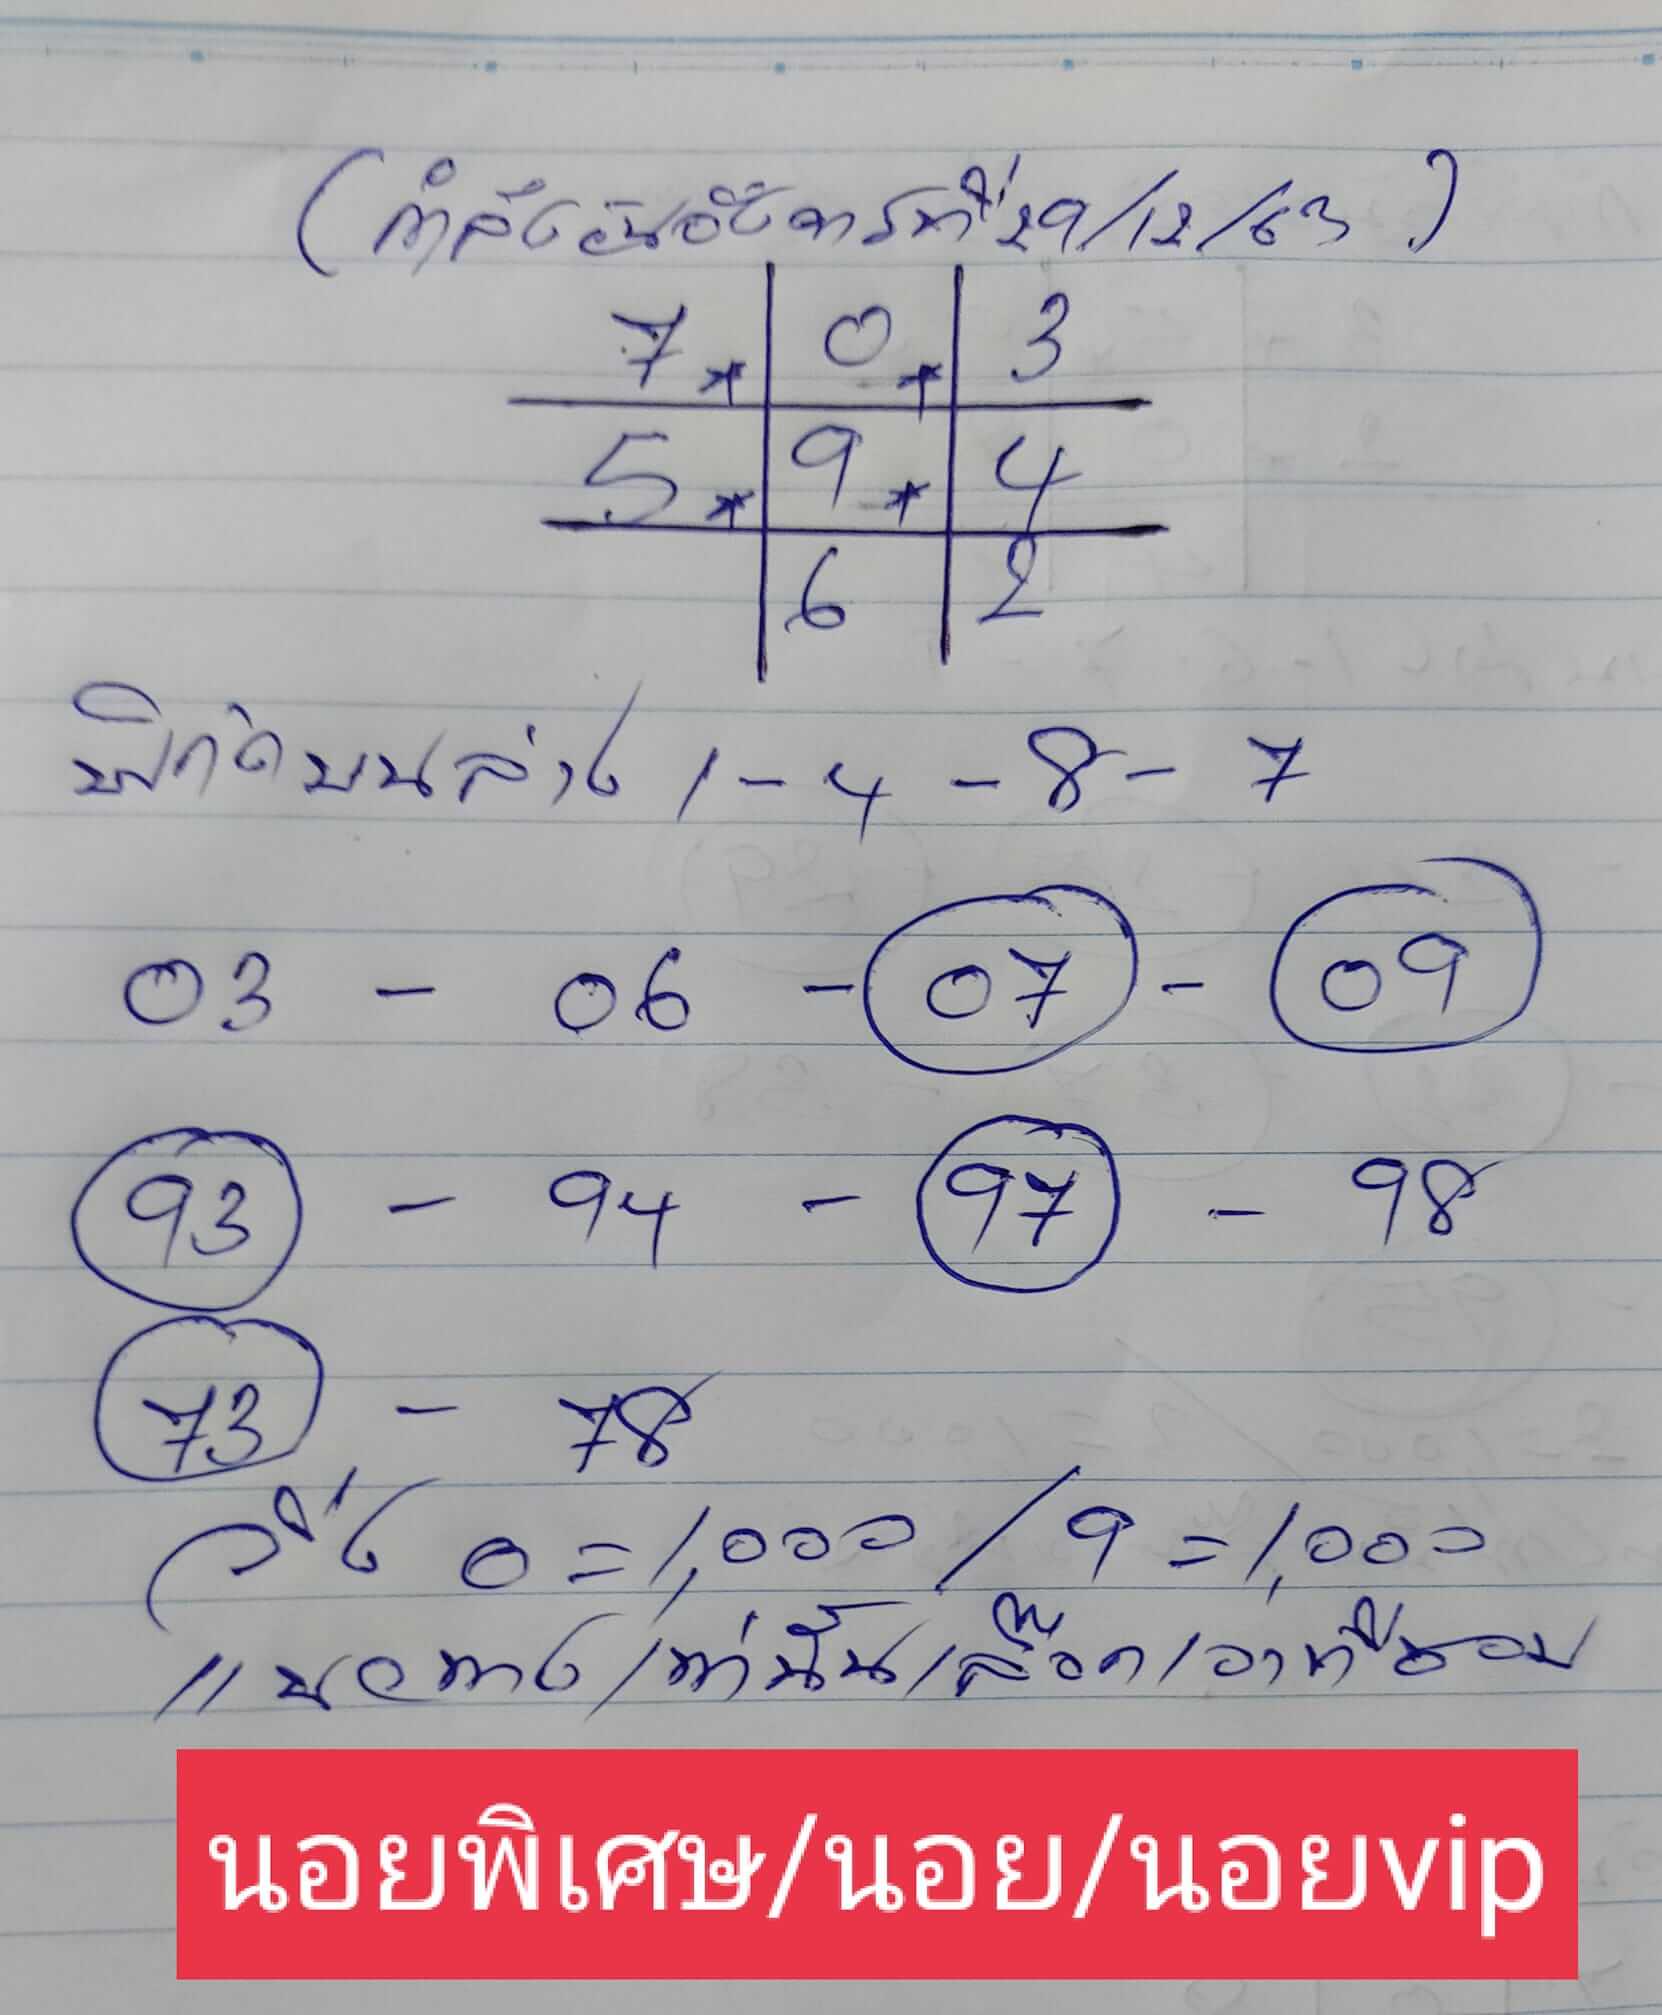 (กำลังวันอังคารที่ 29/12/63)
7 * 0 * 3
5 * 9 * 4
6 2
พิกัดบนล่าง 1 - 4 - 8 - 7
03 - 06 - 07 - 09
93 - 94 - 97 - 98
73 - 78
วิ่ง 0 = 1,000 / 9 = 1,000
แนะทางเท่านั้นเลือกเอาที่ชอบ
นอยพิเศษ/นอย/นอยvip